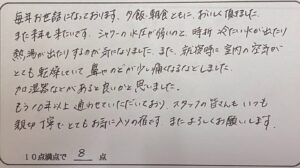 毎年お世話になっております。夕飯、朝食ともに、おいしく頂きました。
また来年も来たいです。シャワーの水圧が弱いのと、時折冷たい水が出たり
熱湯が出たりするのが気になりました。また、就寝時に室内の空気が
とても乾燥していて鼻やのどが少し痛くなるなどしました。
加湿器などがあると良いかと思いました。
もう10年以上通わせていただいており、スタッフの皆さんもいつも
親切丁寧でとてもお気に入りの宿です。またよろしくお願いします。
10点満点で 8 点